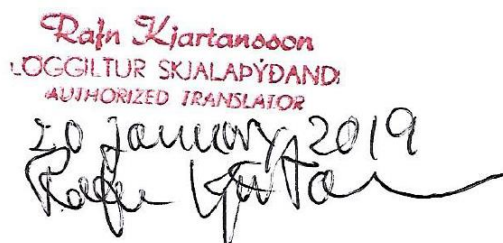 Rafn Kjartansson
LÖGGILTUR SKJALAÞÝÐANDI
AUTHORIZED TRANSLATOR
20 January 2019
Rafn Kjartansson